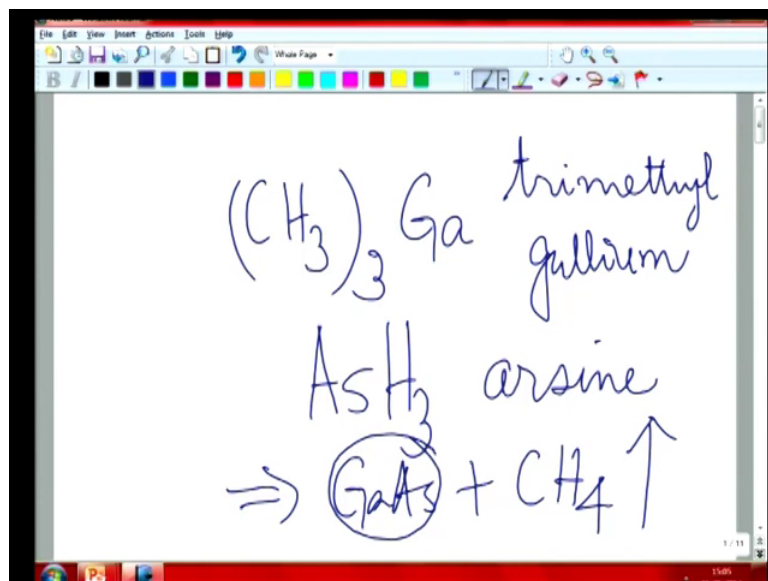 File Edit View Insert Actions Tools Help
Whole Page
B I
(CH3)3 Ga trimethyl
gallium
AsH3 arsine
⇒ GaAs + CH4 ↑
1 / 11
15:05